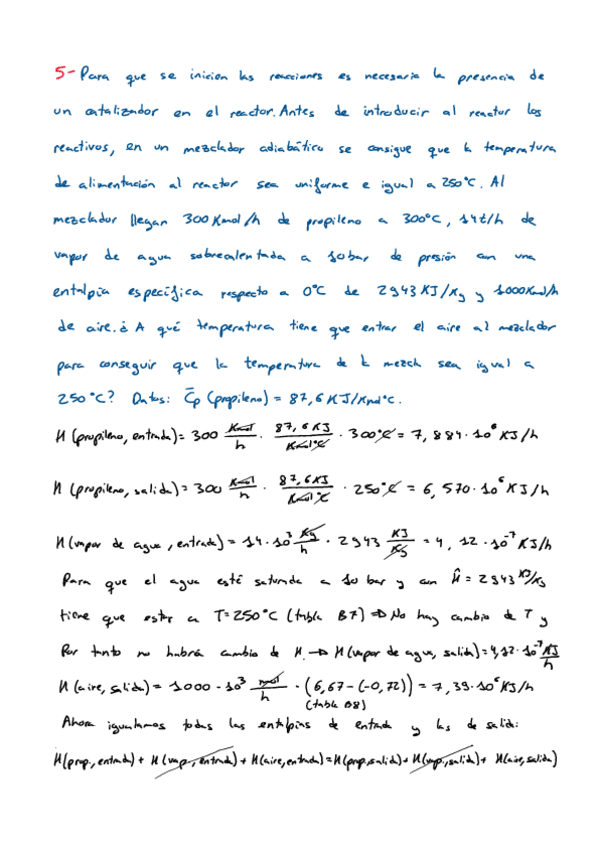 5- Para que se inicien las reacciones es necesaria la presencia de
un catalizador en el reactor. Antes de introducir al reactor los
reactivos, en un mezclador adiabático se consigue que la temperatura
de alimentación al reactor sea uniforme e igual a 250°C. Al
mezclador llegan 300 Kmol/h de propileno a 300°C, 14t/h de
vapor de agua sobrecalentada a 10bar de presión con una
entalpía específica respecto a 0°C de 2943 KJ/Kg y 1000Kmol/h
de aire. ¿A qué temperatura tiene que entrar el aire al mezclador
para conseguir que la temperatura de la mezcla sea igual a
250°C? Datos: C̄p (propileno) = 87,6 KJ/Kmol°C.
H (propileno, entrada) = 300 Kmol/h · 87,6 KJ/Kmol°C · 300°C = 7,884·10⁶ KJ/h
H (propileno, salida) = 300 Kmol/h · 87,6 KJ/Kmol°C · 250°C = 6,570·10⁶ KJ/h
H (vapor de agua, entrada) = 14·10³ Kg/h · 2943 KJ/Kg = 4,12·10⁻⁷ KJ/h
Para que el agua esté saturada a 10 bar y con Ĥ = 2943 KJ/Kg
tiene que estar a T=250°C (tabla B7) ⇒ No hay cambio de T y
Por tanto no habrá cambio de H. → H (vapor de agua, salida) = 4,12·10⁻⁷ KJ/h
H (aire, salida) = 1000·10³ mol/h · (6,67-(-0,72)) = 7,39·10⁶ KJ/h
(tabla B8)
Ahora igualamos todas las entalpías de entrada y las de salida:
H(prop., entrada) + H(vap., entrada) + H(aire, entrada) = H(prop, salida) + H(vap., salida) + H(aire, salida)